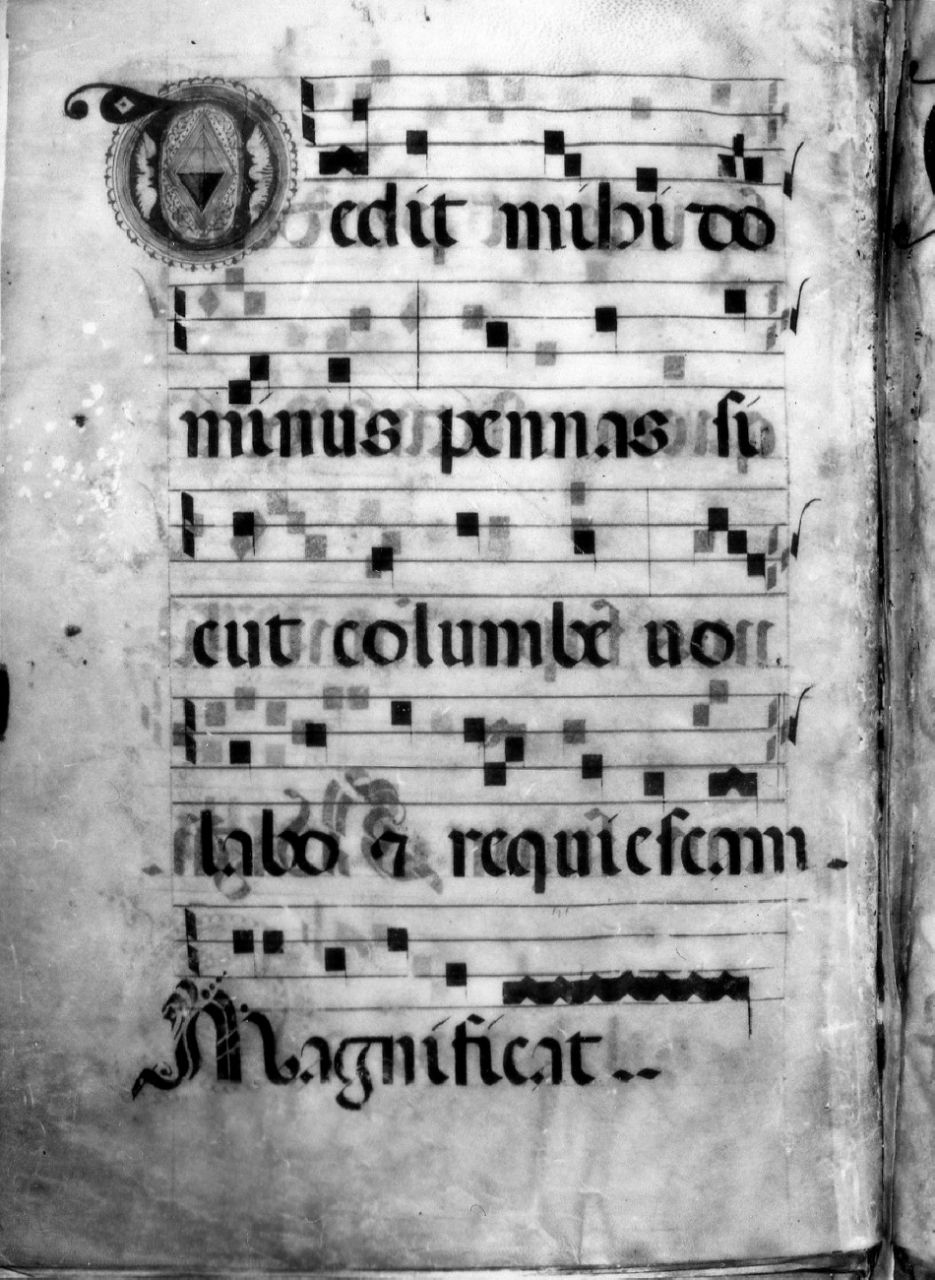 Dedit mihi do
minus pennas si
cut columbe uo
labo ⁊ requiescam.
Magnificat..